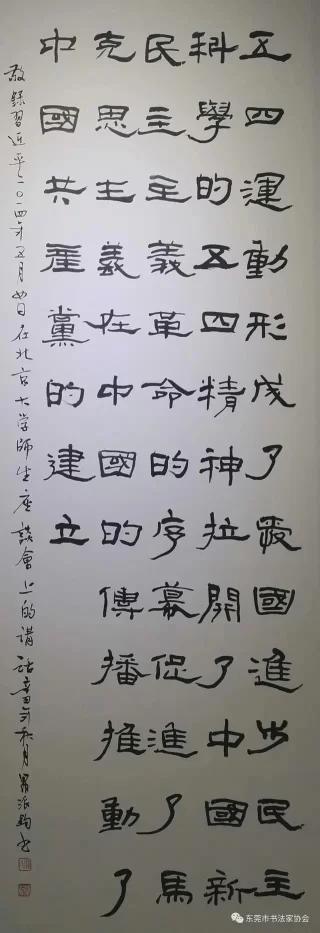 五四運動形成了愛國進步民主
科學的五四精神拉開了中國新
民主主義革命的序幕促進了馬
克思主義在中國的傳播推動了
中國共產黨的建立
敬錄習近平二〇一四年五月四日在北京大学師生座談會上的講話辛丑年秋月
东莞市书法家协会